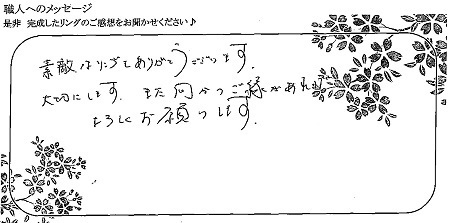 職人へのメッセージ
是非 完成したリングのご感想をお聞かせください♪
素敵なリングをありがとうございます。
大切にします。また何かのご縁があれば
よろしくお願いします。